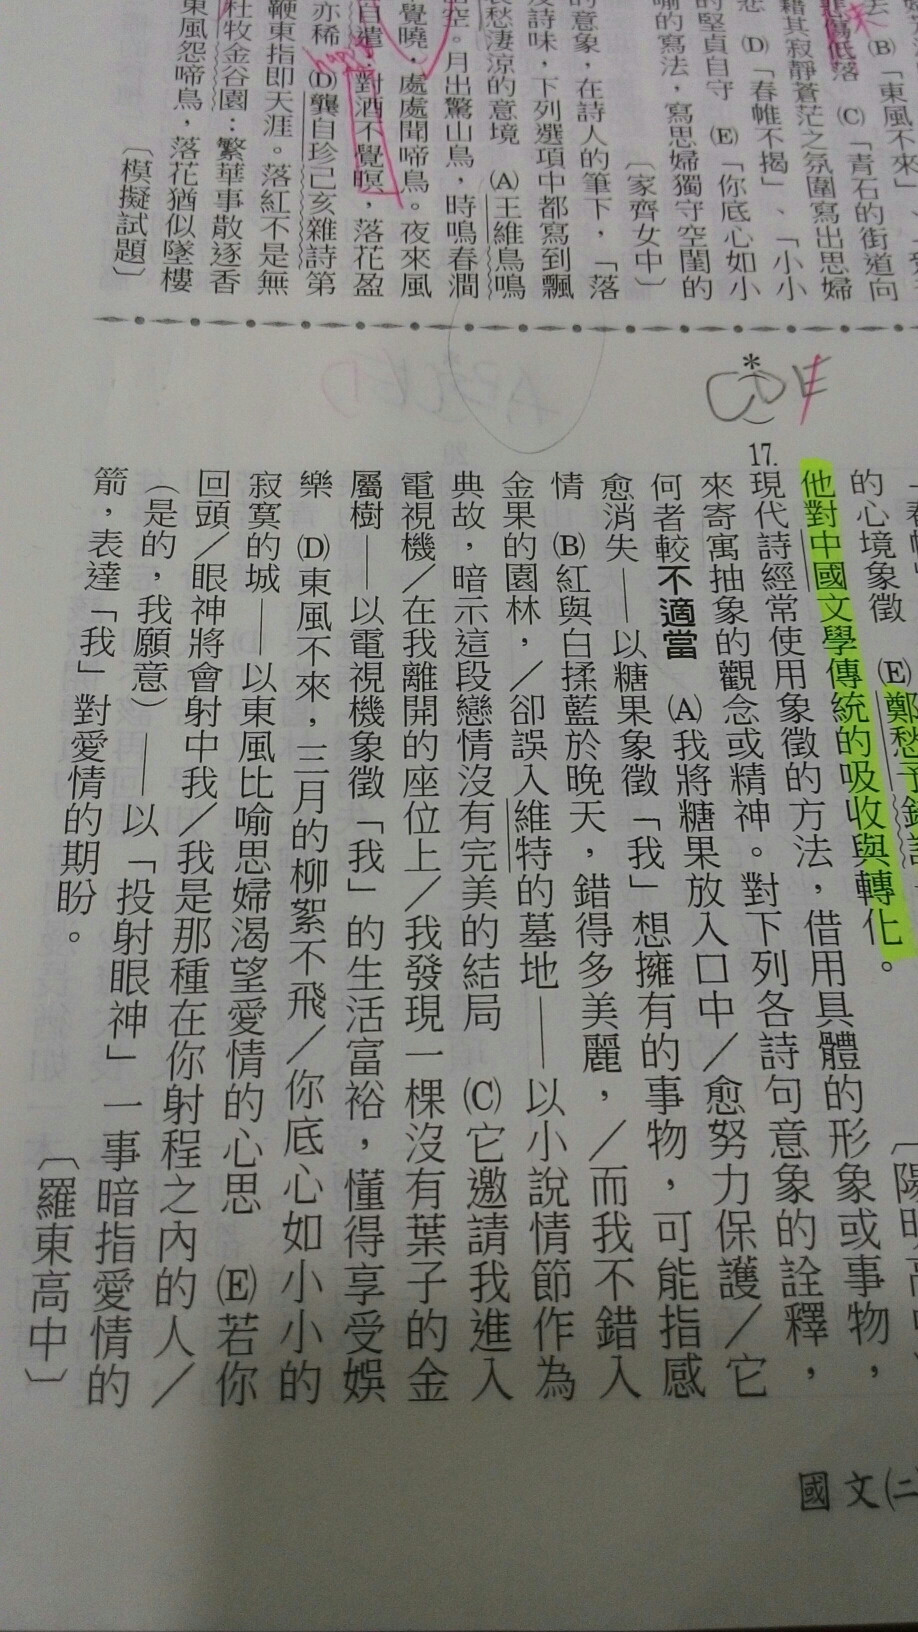 去 (B)「東風不來」
悲傷低落 (C)「青石的街道向
藉其寂靜蒼茫之氛圍寫出思婦
悲 (D)「春帷不揭」、「小小
的堅貞自守 (E)「你底心如小
喻的寫法，寫思婦獨守空閨的
〔家齊女中〕
的意象，在詩人的筆下，「落
及詩味，下列選項中都寫到飄
哀愁淒涼的意境 (A)王維鳥鳴
空。月出驚山鳥，時鳴春澗
覺曉，處處聞啼鳥。夜來風
自遣：對酒不覺暝，落花盈
happy
亦稀 (D)龔自珍己亥雜詩第
鞭東指即天涯。落紅不是無
杜牧金谷園：繁華事散逐香
東風怨啼鳥，落花猶似墜樓
〔模擬試題〕
的心境象徵 (E)鄭愁予
他對中國文學傳統的吸收與轉化。
*
17.
現代詩經常使用象徵的方法，借用具體的形象或事物，
來寄寓抽象的觀念或精神。對下列各詩句意象的詮釋，
何者較不適當 (A)我將糖果放入口中／愈努力保護／它
愈消失——以糖果象徵「我」想擁有的事物，可能指感
情 (B)紅與白揉藍於晚天，錯得多美麗，／而我不錯入
金果的園林，／卻誤入維特的墓地——以小說情節作為
典故，暗示這段戀情沒有完美的結局 (C)它邀請我進入
電視機／在我離開的座位上／我發現一棵沒有葉子的金
屬樹——以電視機象徵「我」的生活富裕，懂得享受娛
樂 (D)東風不來，三月的柳絮不飛／你底心如小小的
寂寞的城——以東風比喻思婦渴望愛情的心思 (E)若你
回頭／眼神將會射中我／我是那種在你射程之內的人／
（是的，我願意）——以「投射眼神」一事暗指愛情的
箭，表達「我」對愛情的期盼。
〔羅東高中〕
國文(二